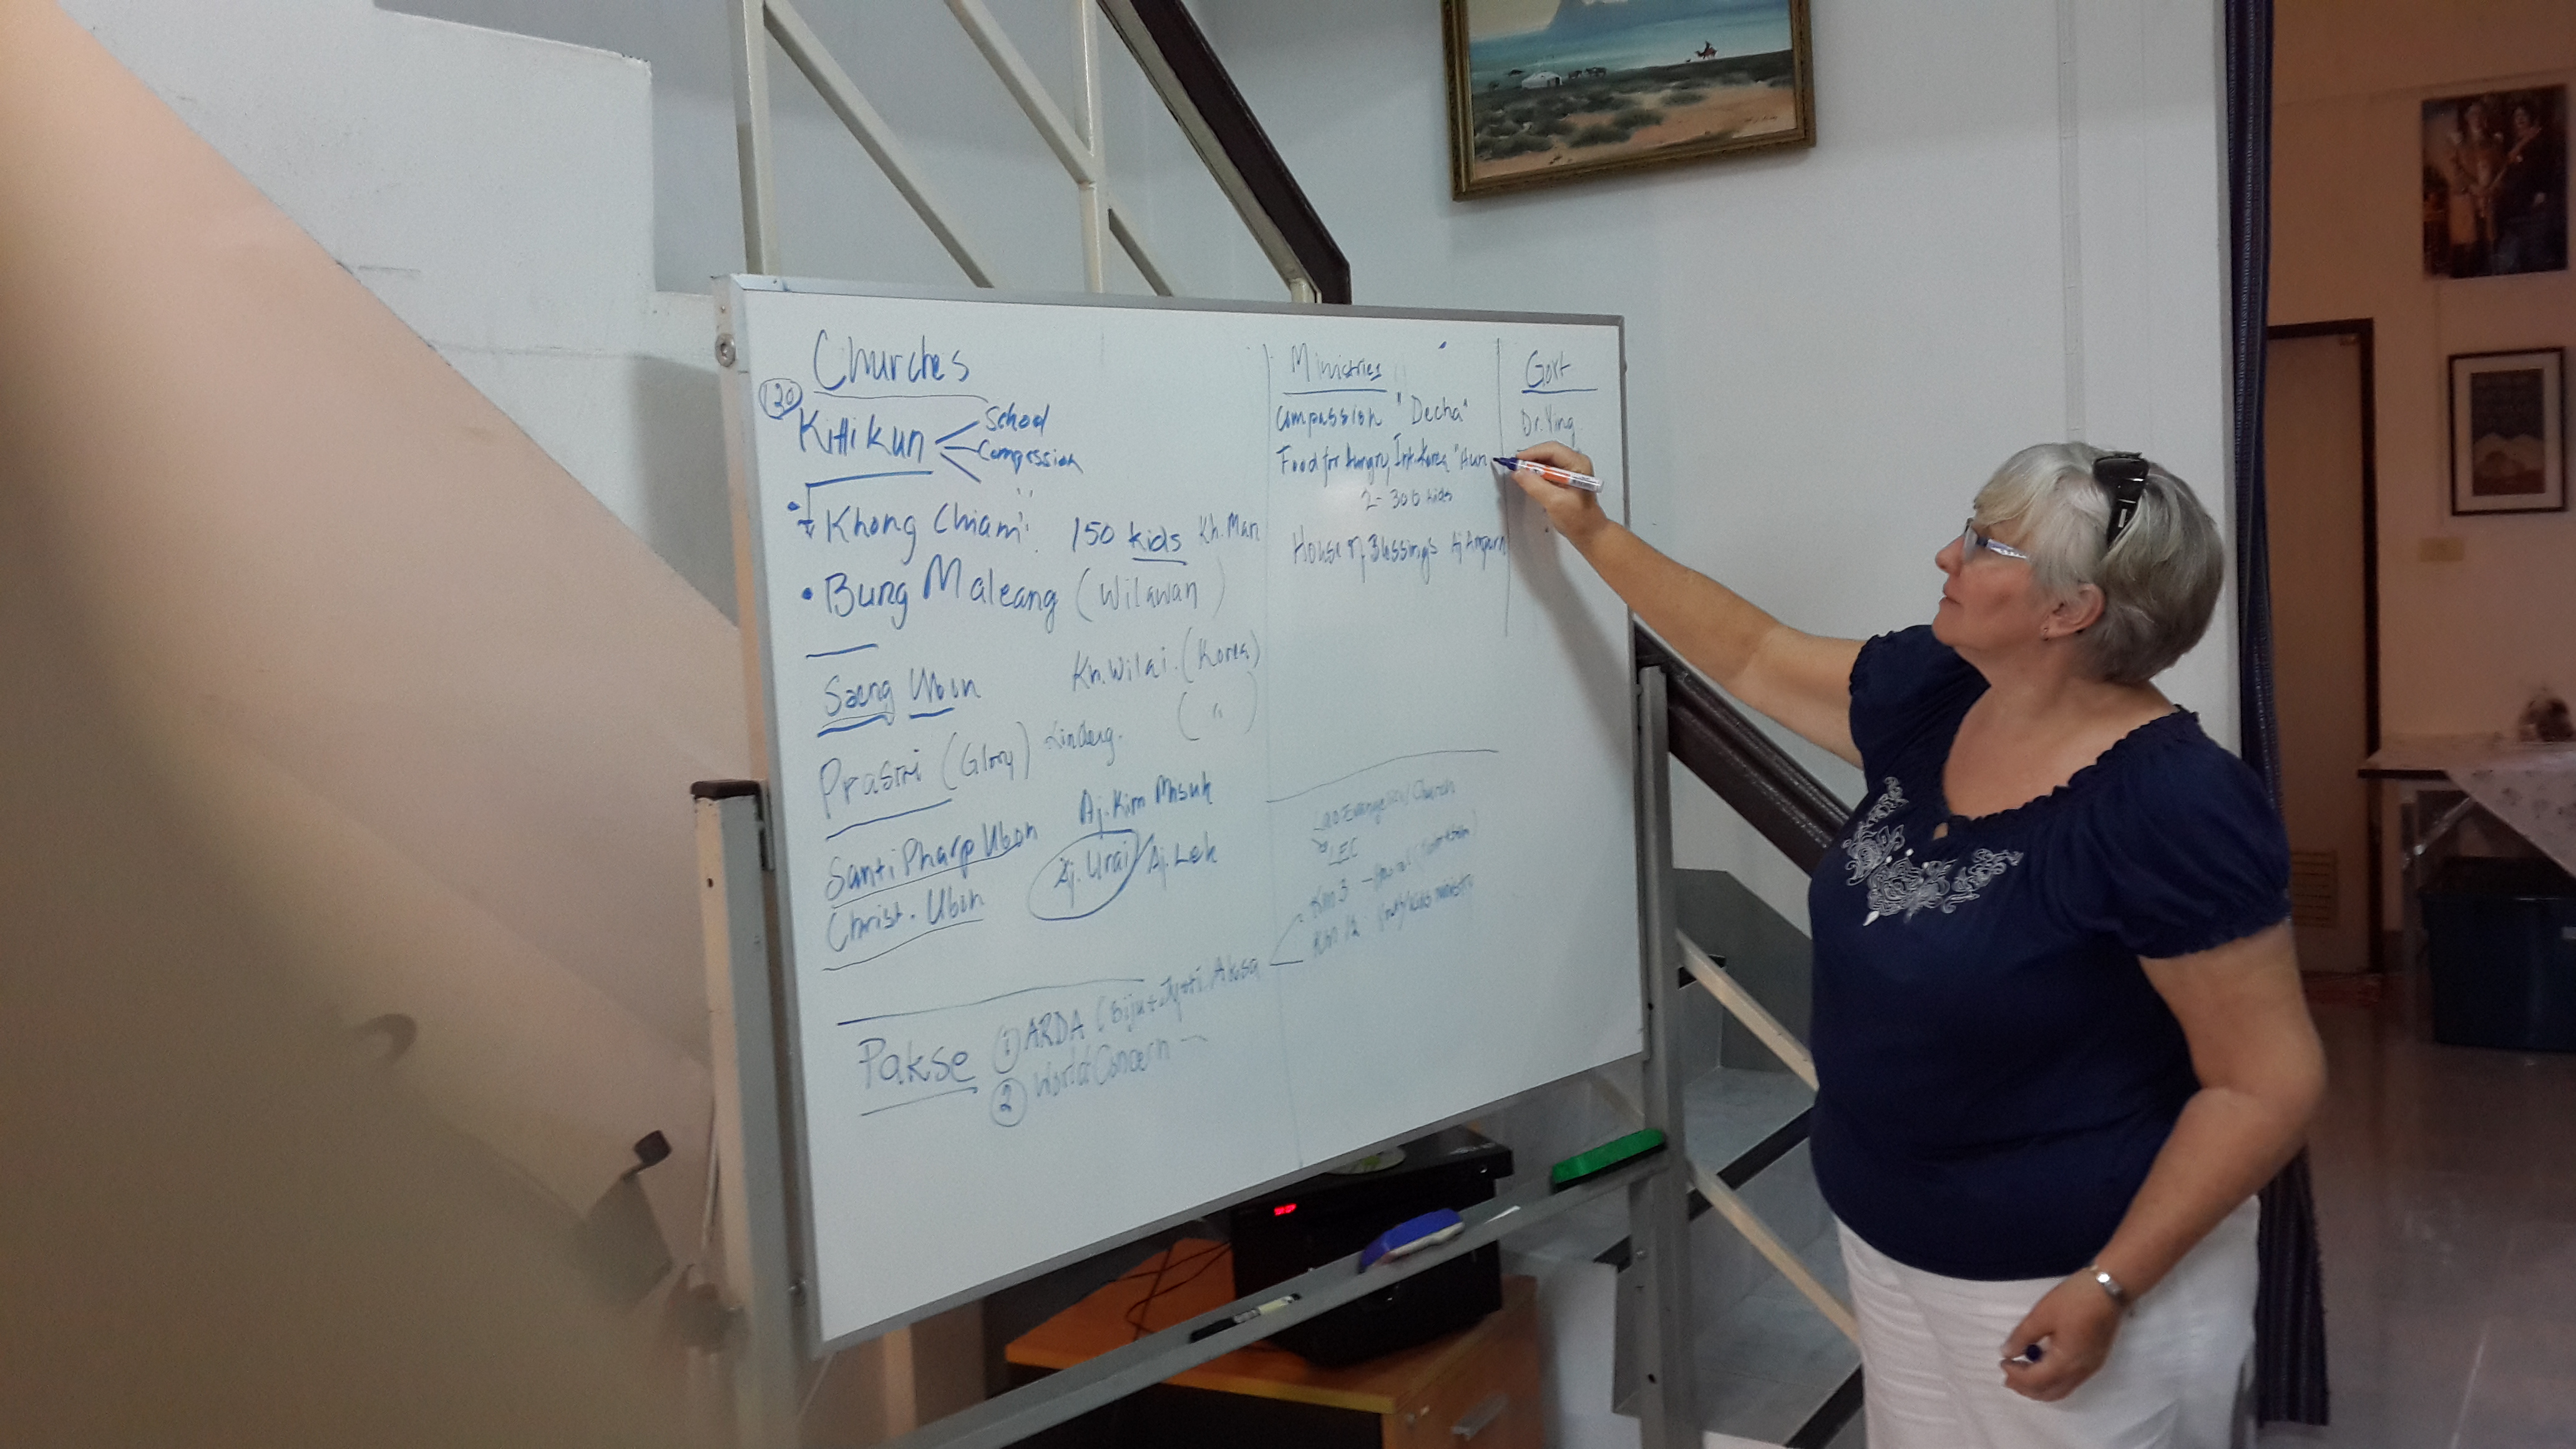 Churches
120
Kittikun
School
Compassion
Khong Chiam 150 kids Kh. Man
Bung Maleang (Wilawan)
Saeng Ubon Kh. Wilai. (Korea)
Prasiri (Glory) ( " )
SantiPharp Ubon Aj. Kim Misuk
Christ. Ubon Aj. Urai Aj. Lek
Pakse ① ARDA (Biju + Jyoti Aksa
② World Concern
Ministries
Compassion "Decha"
Food for hungry Int. Korea "Aun
2-300 kids
House of Blessings Aj Amparn
Lao Evangelical Church
LEC
Km 3
Km 12
Govt
Dr. Ying